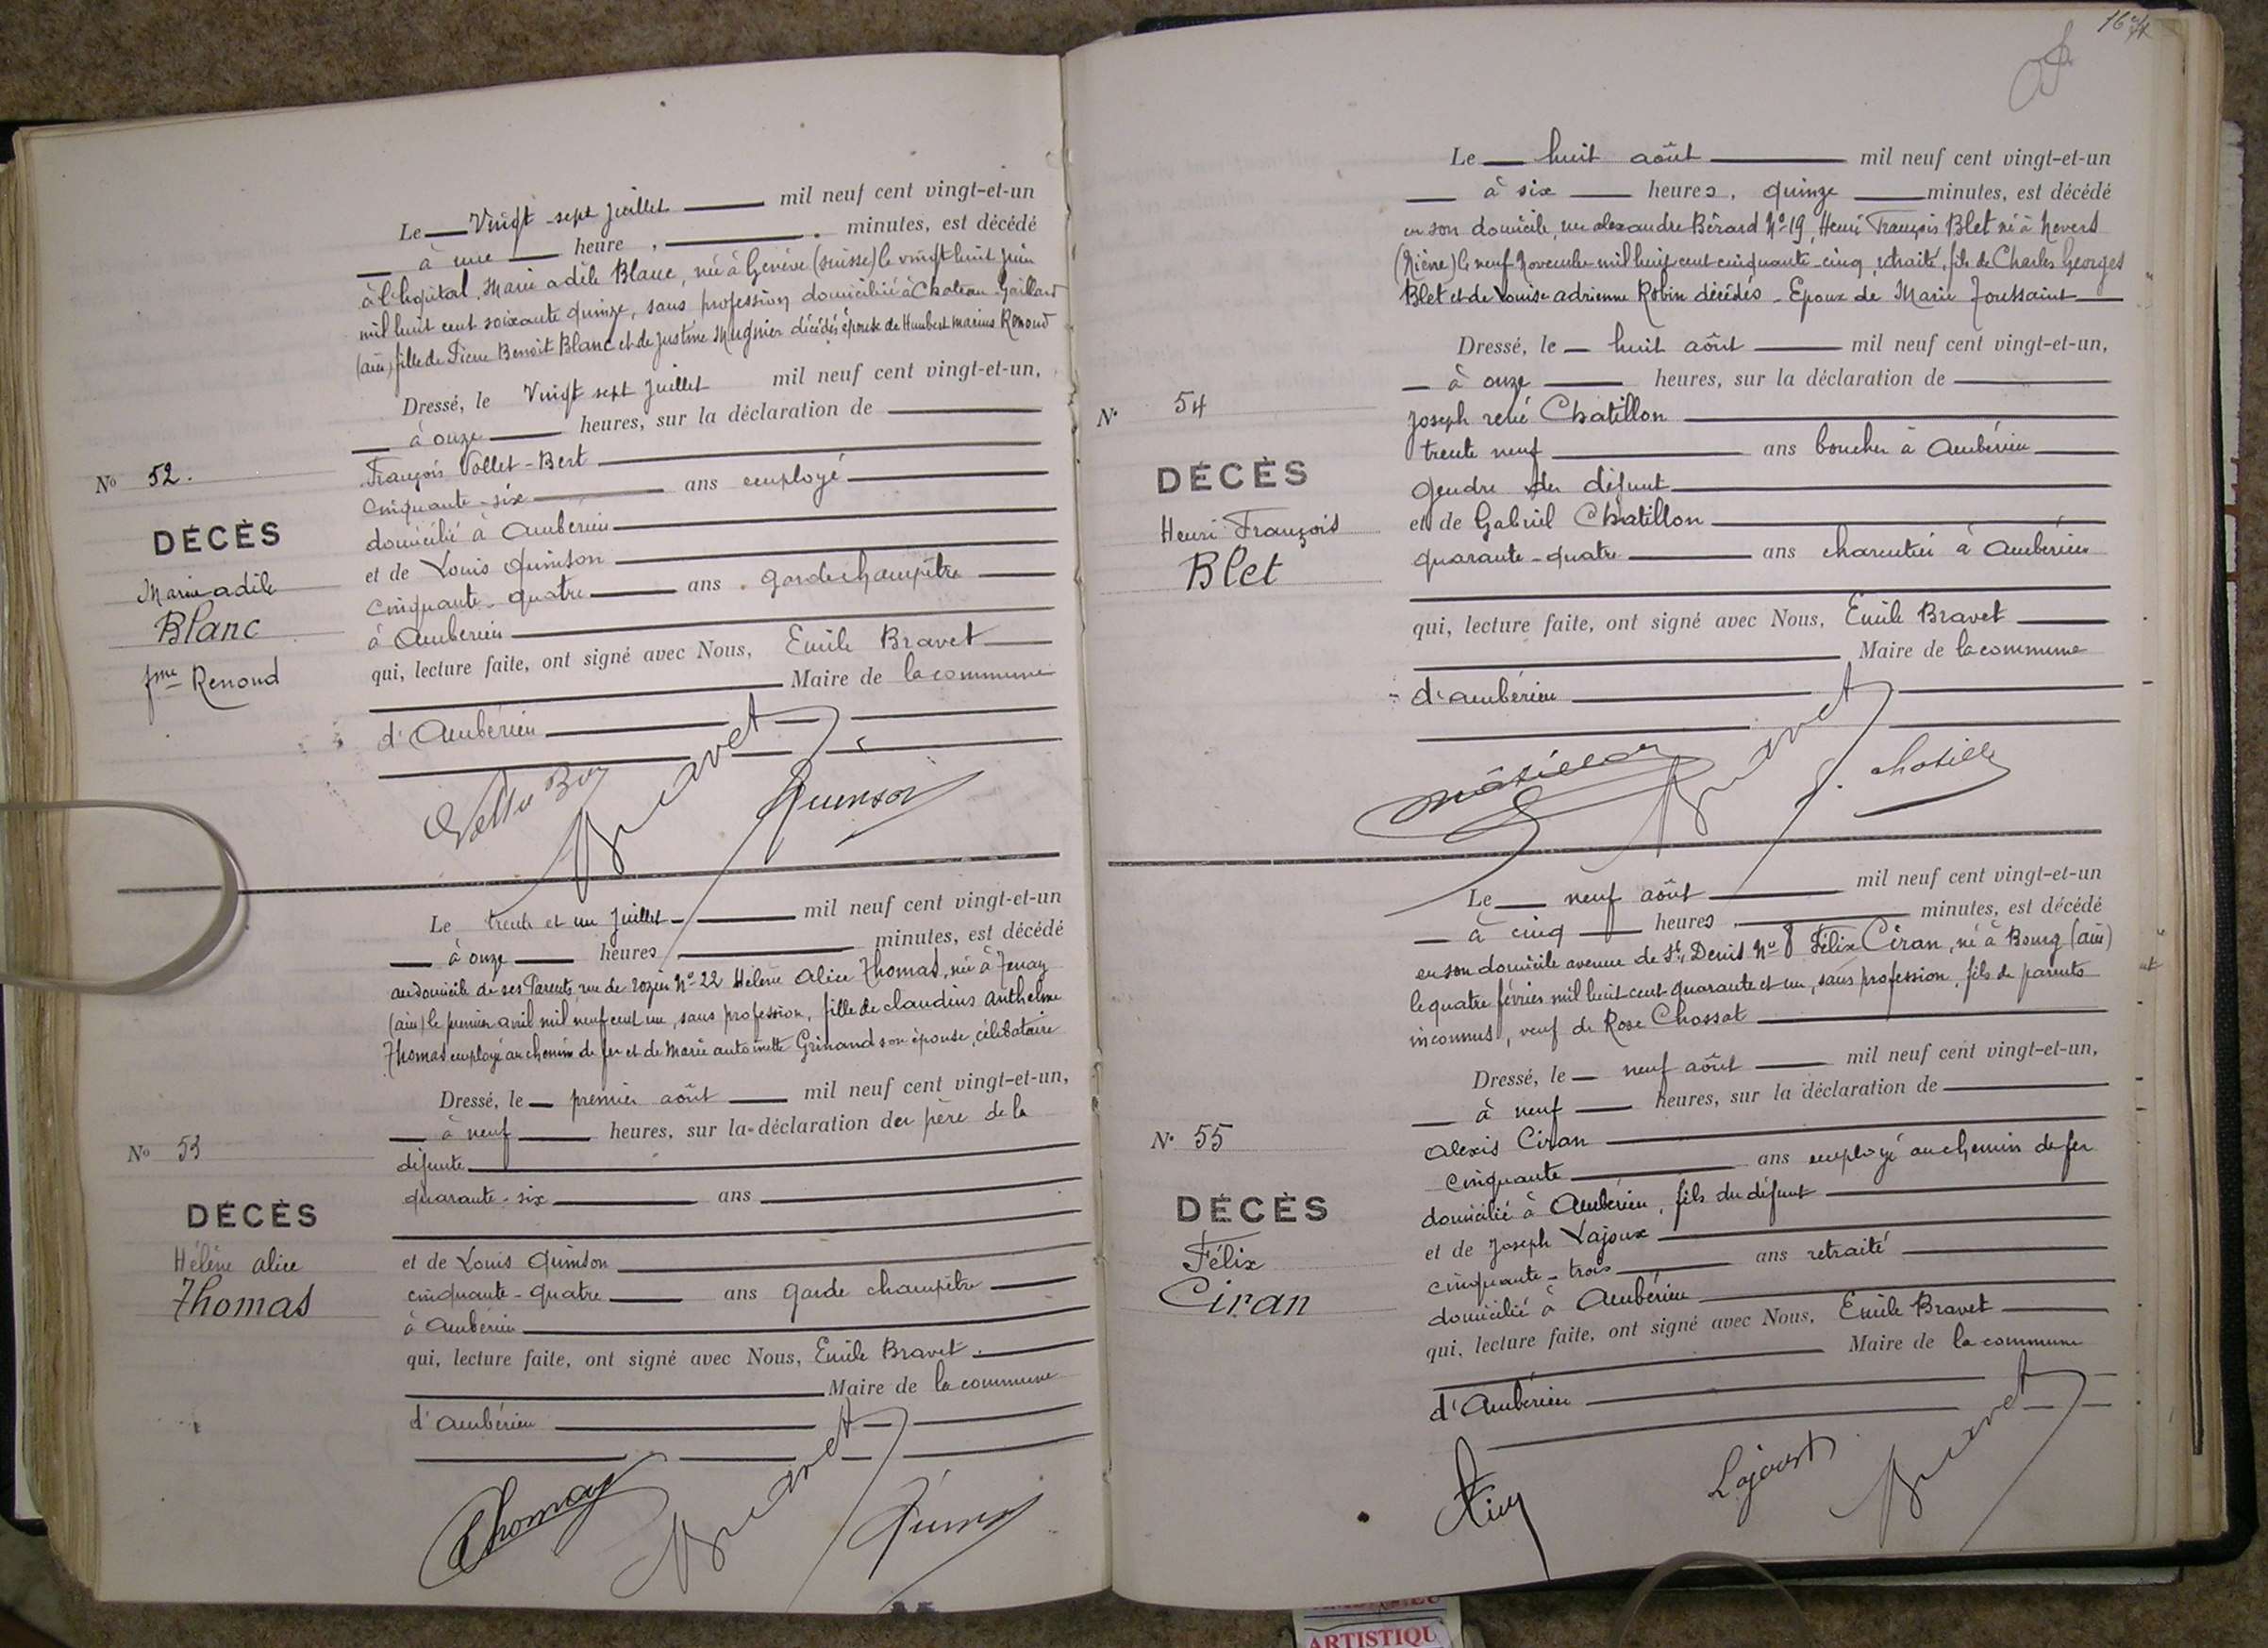 Le Vingt-sept juillet mil neuf cent vingt-et-un
à une heure, minutes, est décédé
à l'hôpital, Marie adèle Blanc, née à Genève (suisse) le vingt huit juin
mil huit cent soixante quinze, sans profession domiciliée à Chateau-Gaillard
(ain) fille de Pierre Benoit Blanc et de Justine Mugnier décédés épouse de Humbert marius Renoud
Dressé, le Vingt sept juillet mil neuf cent vingt-et-un,
à onze heures, sur la déclaration de
François Vollet-Bert
Cinquante-six ans employé
domicilié à Ambérieu
et de Louis Quinson
Cinquante-quatre ans garde champêtre
à Ambérieu
qui, lecture faite, ont signé avec Nous, Emile Bravet
Maire de la commune
d'Ambérieu
No 52.
DÉCÈS
Marie adèle
Blanc
fme Renoud
Bravet
Quinson
Le trente et un juillet mil neuf cent vingt-et-un
à onze heures minutes, est décédé
au domicile de ses Parents, rue de rozier No 22 Hélène Alice Thomas, née à Tenay
(ain) le premier avril mil neuf cent un, sans profession, fille de claudius anthelme
Thomas employé au chemin de fer et de Marie antoinette Grinand son épouse, célibataire
Dressé, le premier août mil neuf cent vingt-et-un,
à neuf heures, sur la déclaration du père de la
défunte
quarante-six ans
et de Louis Quinson
cinquante-quatre ans garde champêtre
à Ambérieu
qui, lecture faite, ont signé avec Nous, Emile Bravet.
Maire de la commune
d'ambérieu
No 53
DÉCÈS
Hélène alice
Thomas
Thomas
Bravet
Le huit août mil neuf cent vingt-et-un
à six heures, quinze minutes, est décédé
en son domicile, rue alexandre Bérard No 19, Henri François Blet né à Nevers
(Nièvre) le neuf Novembre mil huit cent cinquante-cinq, retraité, fils de Charles Georges
Blet et de Louise adrienne Robin décédés - Epoux de Marie Toussaint
Dressé, le huit août mil neuf cent vingt-et-un,
à onze heures, sur la déclaration de
Joseph rené Chatillon
trente neuf ans boucher à Ambérieu
gendre du défunt
et de Gabriel Chatillon
quarante-quatre ans charcutier à Ambérieu
qui, lecture faite, ont signé avec Nous, Emile Bravet
Maire de la commune
d'ambérieu
No 54
DÉCÈS
Henri François
Blet
Bravet
Le neuf août mil neuf cent vingt-et-un
à cinq heures, minutes, est décédé
en son domicile avenue de St Denis No 8 Félix Ciran, né à Bourg (ain)
le quatre février mil huit cent quarante et un, sans profession, fils de parents
inconnus, veuf de Rose Chossat
Dressé, le neuf août mil neuf cent vingt-et-un,
à neuf heures, sur la déclaration de
Alexis Ciran
Cinquante ans employé au chemin de fer
domicilié à Ambérieu, fils du défunt
et de Joseph Lajoux
cinquante-trois ans retraité
domicilié à Ambérieu
qui, lecture faite, ont signé avec Nous, Emile Bravet
Maire de la commune
d'Ambérieu
No 55
DÉCÈS
Félix
Ciran
Bravet
ARTISTIQU